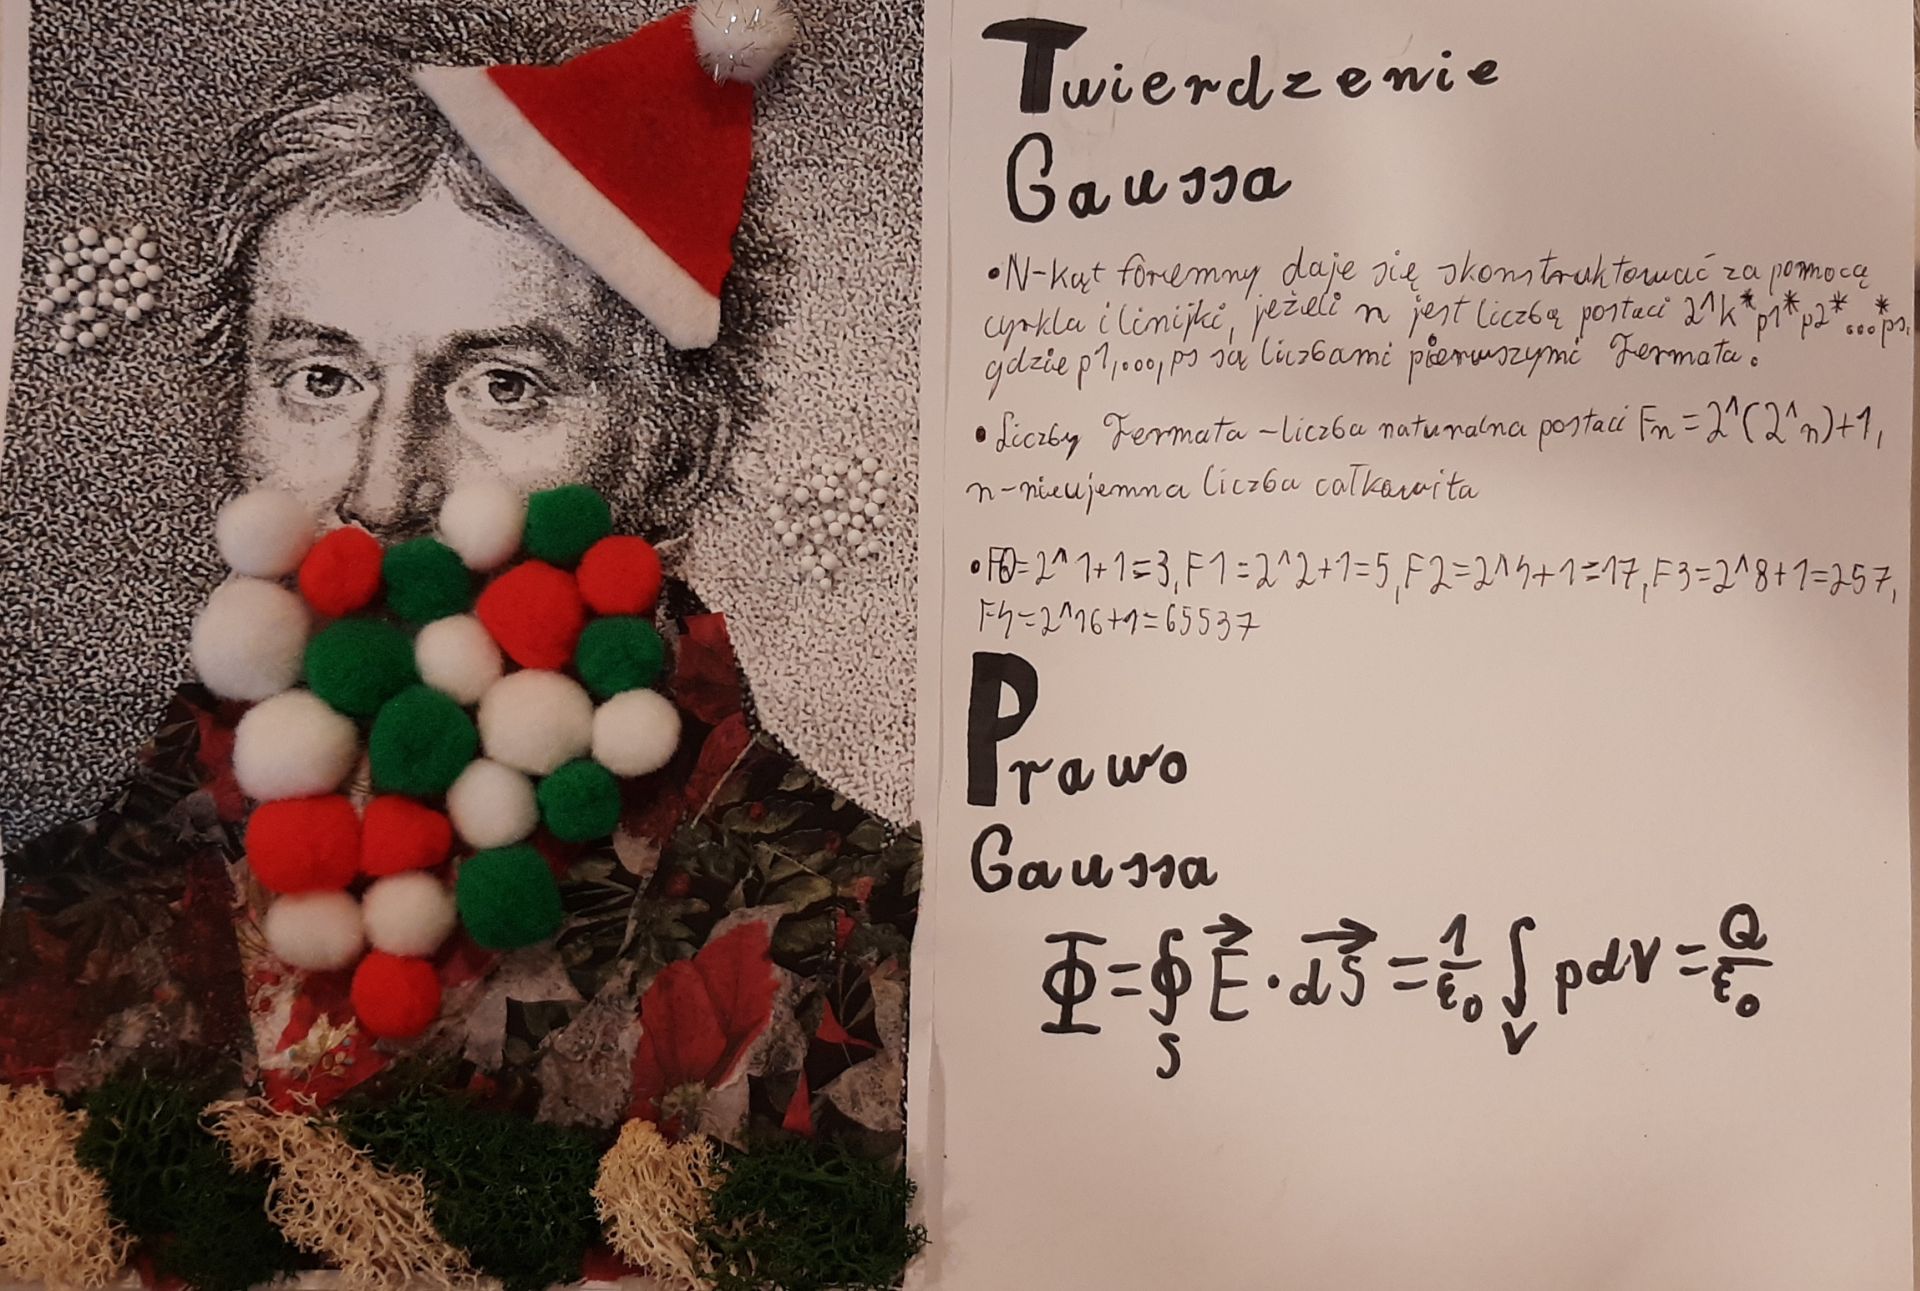 Twierdzenie
Gaussa
•N-kąt foremny daje się skonstruktować za pomocą
cyrkla i linijki, jeżeli n jest liczbą postaci 2^k*p1*p2*...*ps,
gdzie p1,...,ps są liczbami pierwszymi Fermata.
•Liczby Fermata -liczba naturalna postaci Fn=2^(2^n)+1,
n-nieujemna liczba całkowita
•F0=2^1+1=3, F1=2^2+1=5, F2=2^4+1=17, F3=2^8+1=257,
F4=2^16+1=65537
Prawo
Gaussa
Φ=∮S E⃗·dS⃗=1/ε0 ∫V pdV=Q/ε0